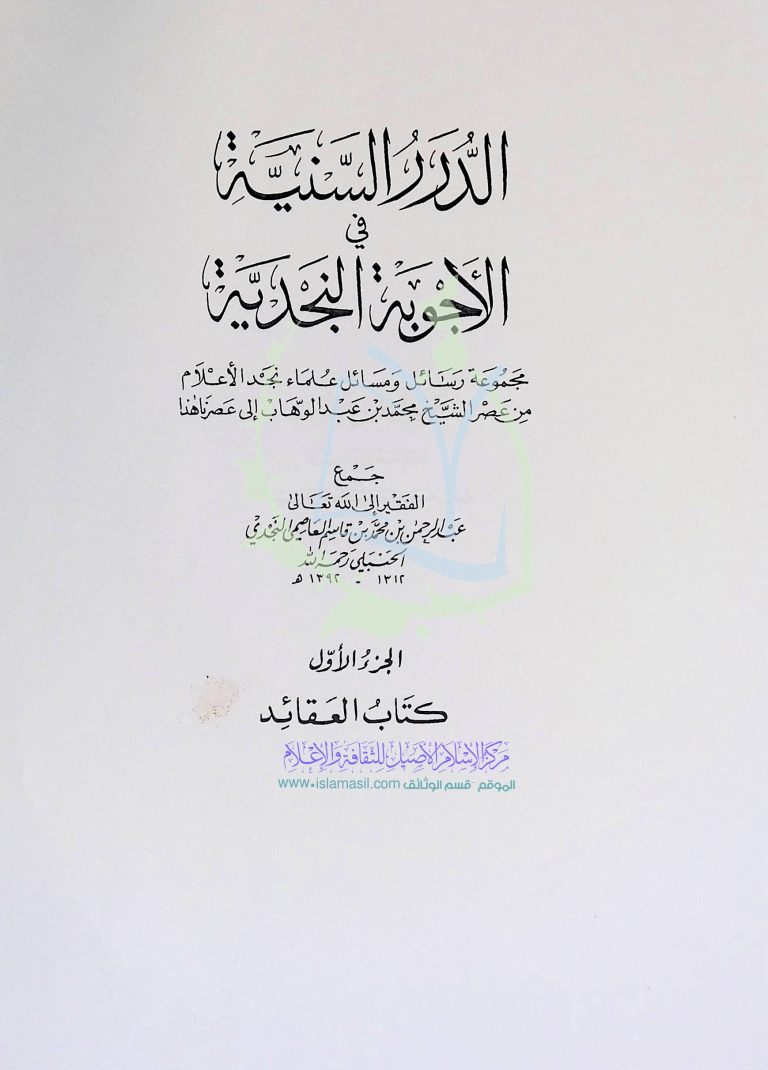 الدُّرَرُ السَّنِيَّة
في
الأَجْوِبَةِ النَّجْدِيَّة
مَجْمُوعَة رَسَائل وَمسَائل عُلمَاء نجد الأعْلَام
مِن عَصْر الشَّيْخ محمَّد بن عَبد الوهّاب إلى عَصرنَا هٰذا
جَمع
الفَقير إلى الله تَعَالىٰ
عَبد الرحمٰن بن محمَّد بن قاسِم العَاصِمي النَّجدي
الحَنبَلي رَحمَه الله
١٣١٢ - ١٣٩٢ هـ
الجزءُ الأوّل
كتَابُ العَقائِد
مَركز الإسلام الأصيل للثقافة والإعلام
الموقع - قسم الوثائق www.islamasil.com